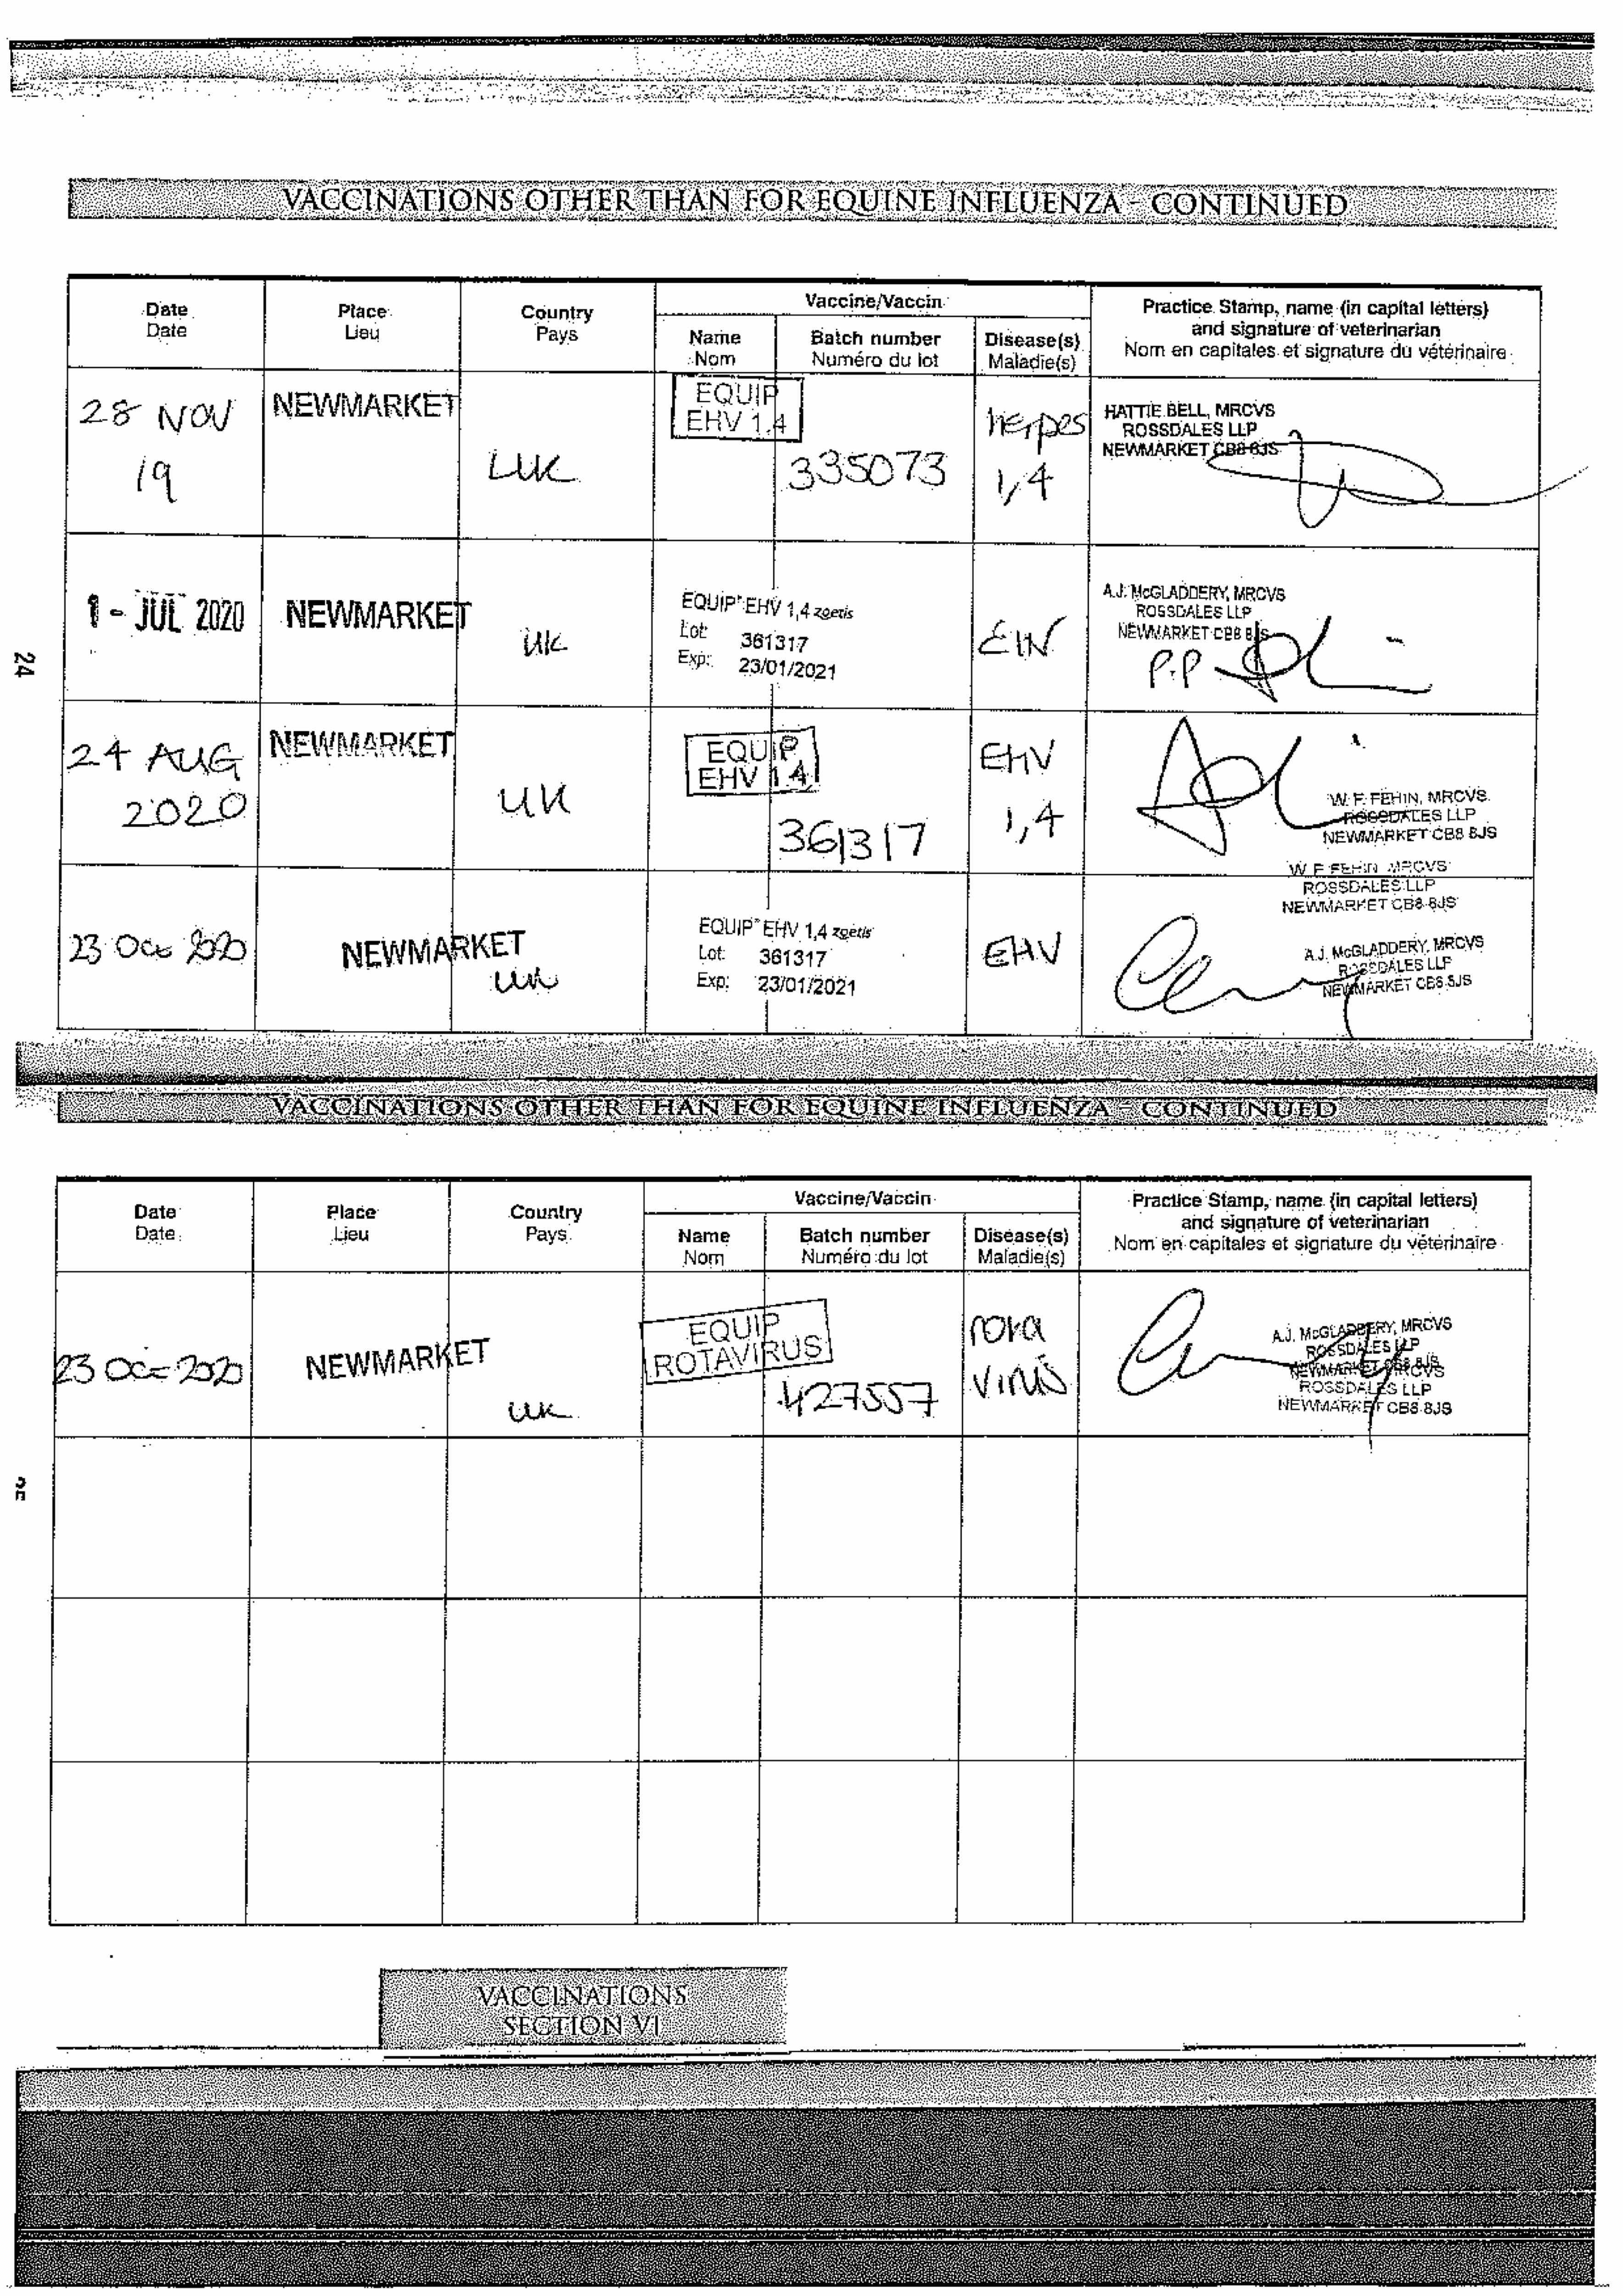 VACCINATIONS OTHER THAN FOR EQUINE INFLUENZA - CONTINUED
Date
Date
Place
Lieu
Country
Pays
Vaccine/Vaccin
Name
Nom
Batch number
Numéro du lot
Disease(s)
Maladie(s)
Practice Stamp, name (in capital letters)
and signature of veterinarian
Nom en capitales et signature du vétérinaire
28 NOV
19
NEWMARKET
UK
EQUIP
EHV 1.4
335073
herpes
1,4
HATTIE BELL, MRCVS
ROSSDALES LLP
NEWMARKET CB8 8JS
1 - JUL 2020
NEWMARKET
UK
EQUIP® EHV 1,4 zoetis
Lot: 361317
Exp: 23/01/2021
A.J. McGLADDERY, MRCVS
ROSSDALES LLP
NEWMARKET CB8 8JS
P.P
24
24 AUG
2020
NEWMARKET
UK
EQUIP
EHV 1.4
361317
EHV
1,4
W. F. FEHIN, MRCVS
ROSSDALES LLP
NEWMARKET CB8 8JS
W. F. FEHIN MRCVS
ROSSDALES LLP
NEWMARKET CB8 8JS
23 Oct 2020
NEWMARKET
UK
EQUIP® EHV 1,4 zoetis
Lot: 361317
Exp: 23/01/2021
EHV
A.J. McGLADDERY, MRCVS
ROSSDALES LLP
NEWMARKET CB8 8JS
VACCINATIONS OTHER THAN FOR EQUINE INFLUENZA - CONTINUED
Date
Date
Place
Lieu
Country
Pays
Vaccine/Vaccin
Name
Nom
Batch number
Numéro du lot
Disease(s)
Maladie(s)
Practice Stamp, name (in capital letters)
and signature of veterinarian
Nom en capitales et signature du vétérinaire
23 Oct 2020
NEWMARKET
UK
EQUIP
ROTAVIRUS
427557
rota
virus
A.J. McGLADDERY, MRCVS
ROSSDALES LLP
NEWMARKET CB8 8JS
ROSSDALES LLP
NEWMARKET CB8 8JS
VACCINATIONS
SECTION VI